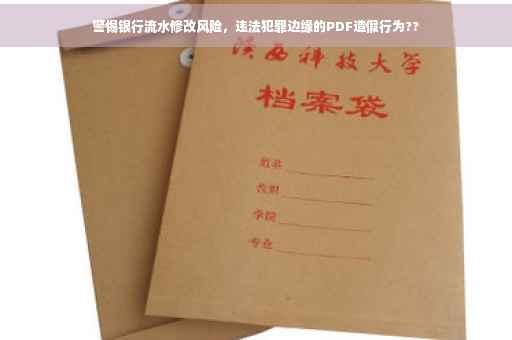 警惕银行流水修改风险，违法犯罪边缘的PDF造假行为??
陕西科技大学
档案袋
姓名
教职
学院
专业